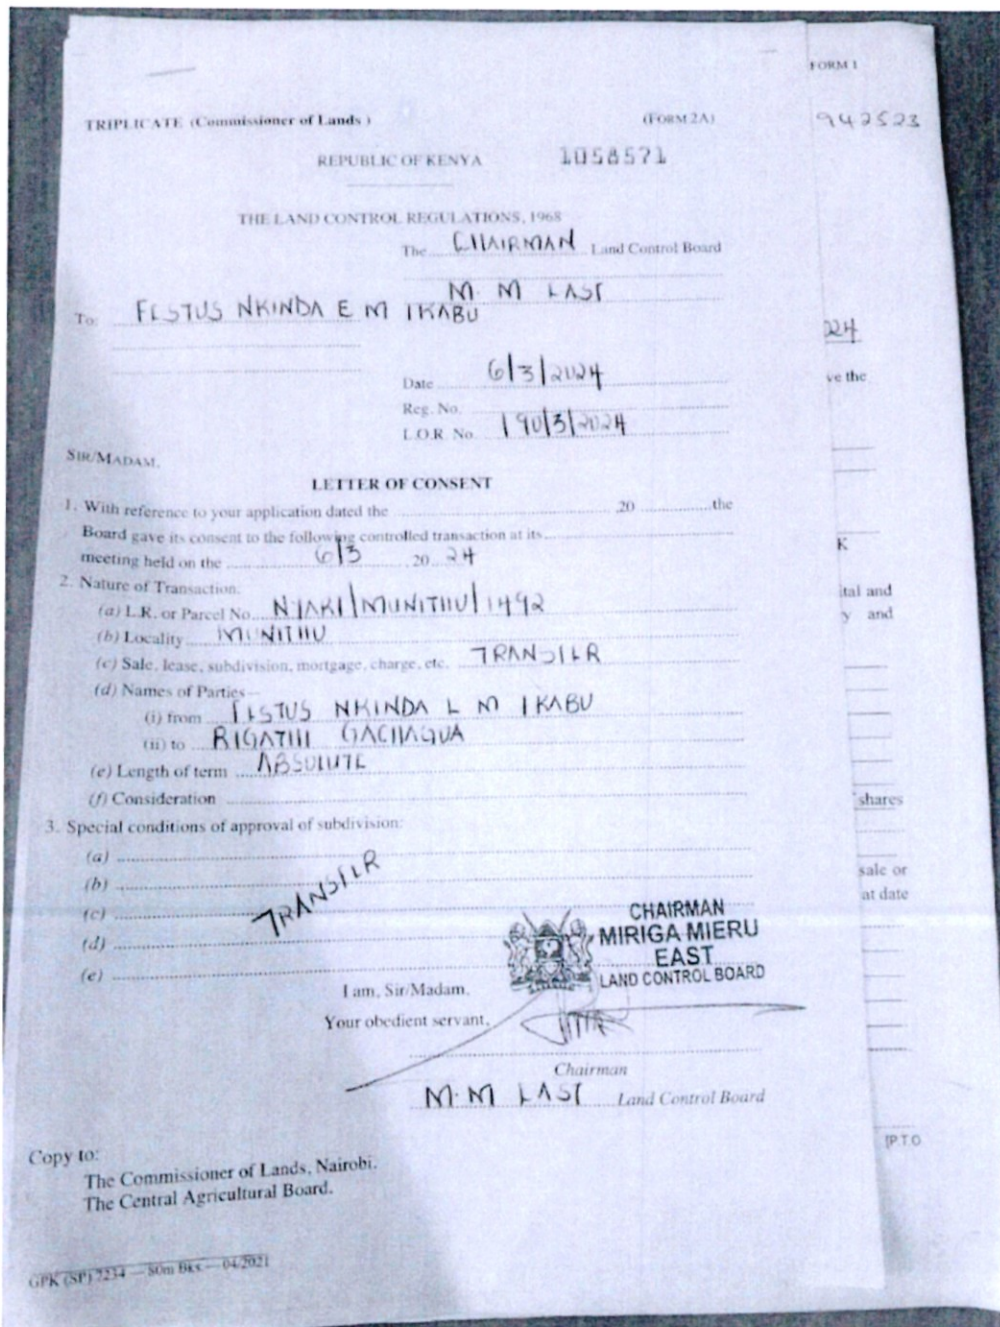 FORM 1
TRIPLICATE (Commissioner of Lands)
(FORM 2A)
942523
REPUBLIC OF KENYA
1058571
THE LAND CONTROL REGULATIONS, 1968
The CHAIRMAN Land Control Board
M.M EAST
To: FESTUS NKINDA E M IKABU
224
Date 6/3/2024
ve the
Reg. No.
L.O.R. No. 190/3/2024
SIR/MADAM,
LETTER OF CONSENT
1. With reference to your application dated the 20 the
Board gave its consent to the following controlled transaction at its
meeting held on the 6/3 20 24
K
2. Nature of Transaction:
(a) L.R. or Parcel No. NYAKI/MUNITHU/1492
ital and
(b) Locality MUNITHU
y and
(c) Sale, lease, subdivision, mortgage, charge, etc. TRANSFER
(d) Names of Parties—
(i) from FESTUS NKINDA E M IKABU
(ii) to RIGATHI GACHAGUA
(e) Length of term ABSOLUTE
(f) Consideration
shares
3. Special conditions of approval of subdivision:
(a)
(b)
sale or
at date
(c)
TRANSFER
(d)
(e)
CHAIRMAN
MIRIGA MIERU
EAST
LAND CONTROL BOARD
I am, Sir/Madam,
Your obedient servant,
Chairman
M.M EAST Land Control Board
[P.T.O
Copy to:
The Commissioner of Lands, Nairobi.
The Central Agricultural Board.
GPK (SP) 7234 — 80m Bks — 04/2021